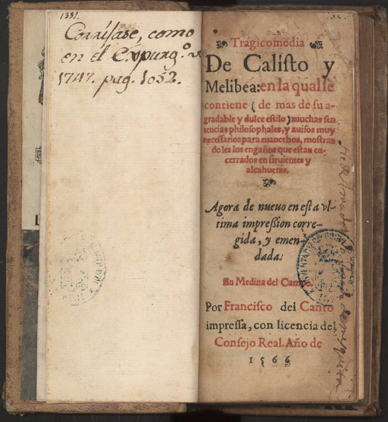 1331.
Corríjase, como
en el Expurg.º de
1747. pag. 1052.
Tragicomedia
De Calisto y
Melibea: en la qual se
contiene (de mas de su a-
gradable y dulce estilo) muchas sen
tencias philosophales, y auisos muy
necessarios para mancebos, mostran
do les los engaños que estan en-
cerrados en siruientes y
alcahuetas.
Agora de nueuo en esta vl
tima impression corre-
gida, y emen-
dada.
En Medina del Campo.
Por Francisco del Canto
impressa, con licencia del
Consejo Real. Año de
1566